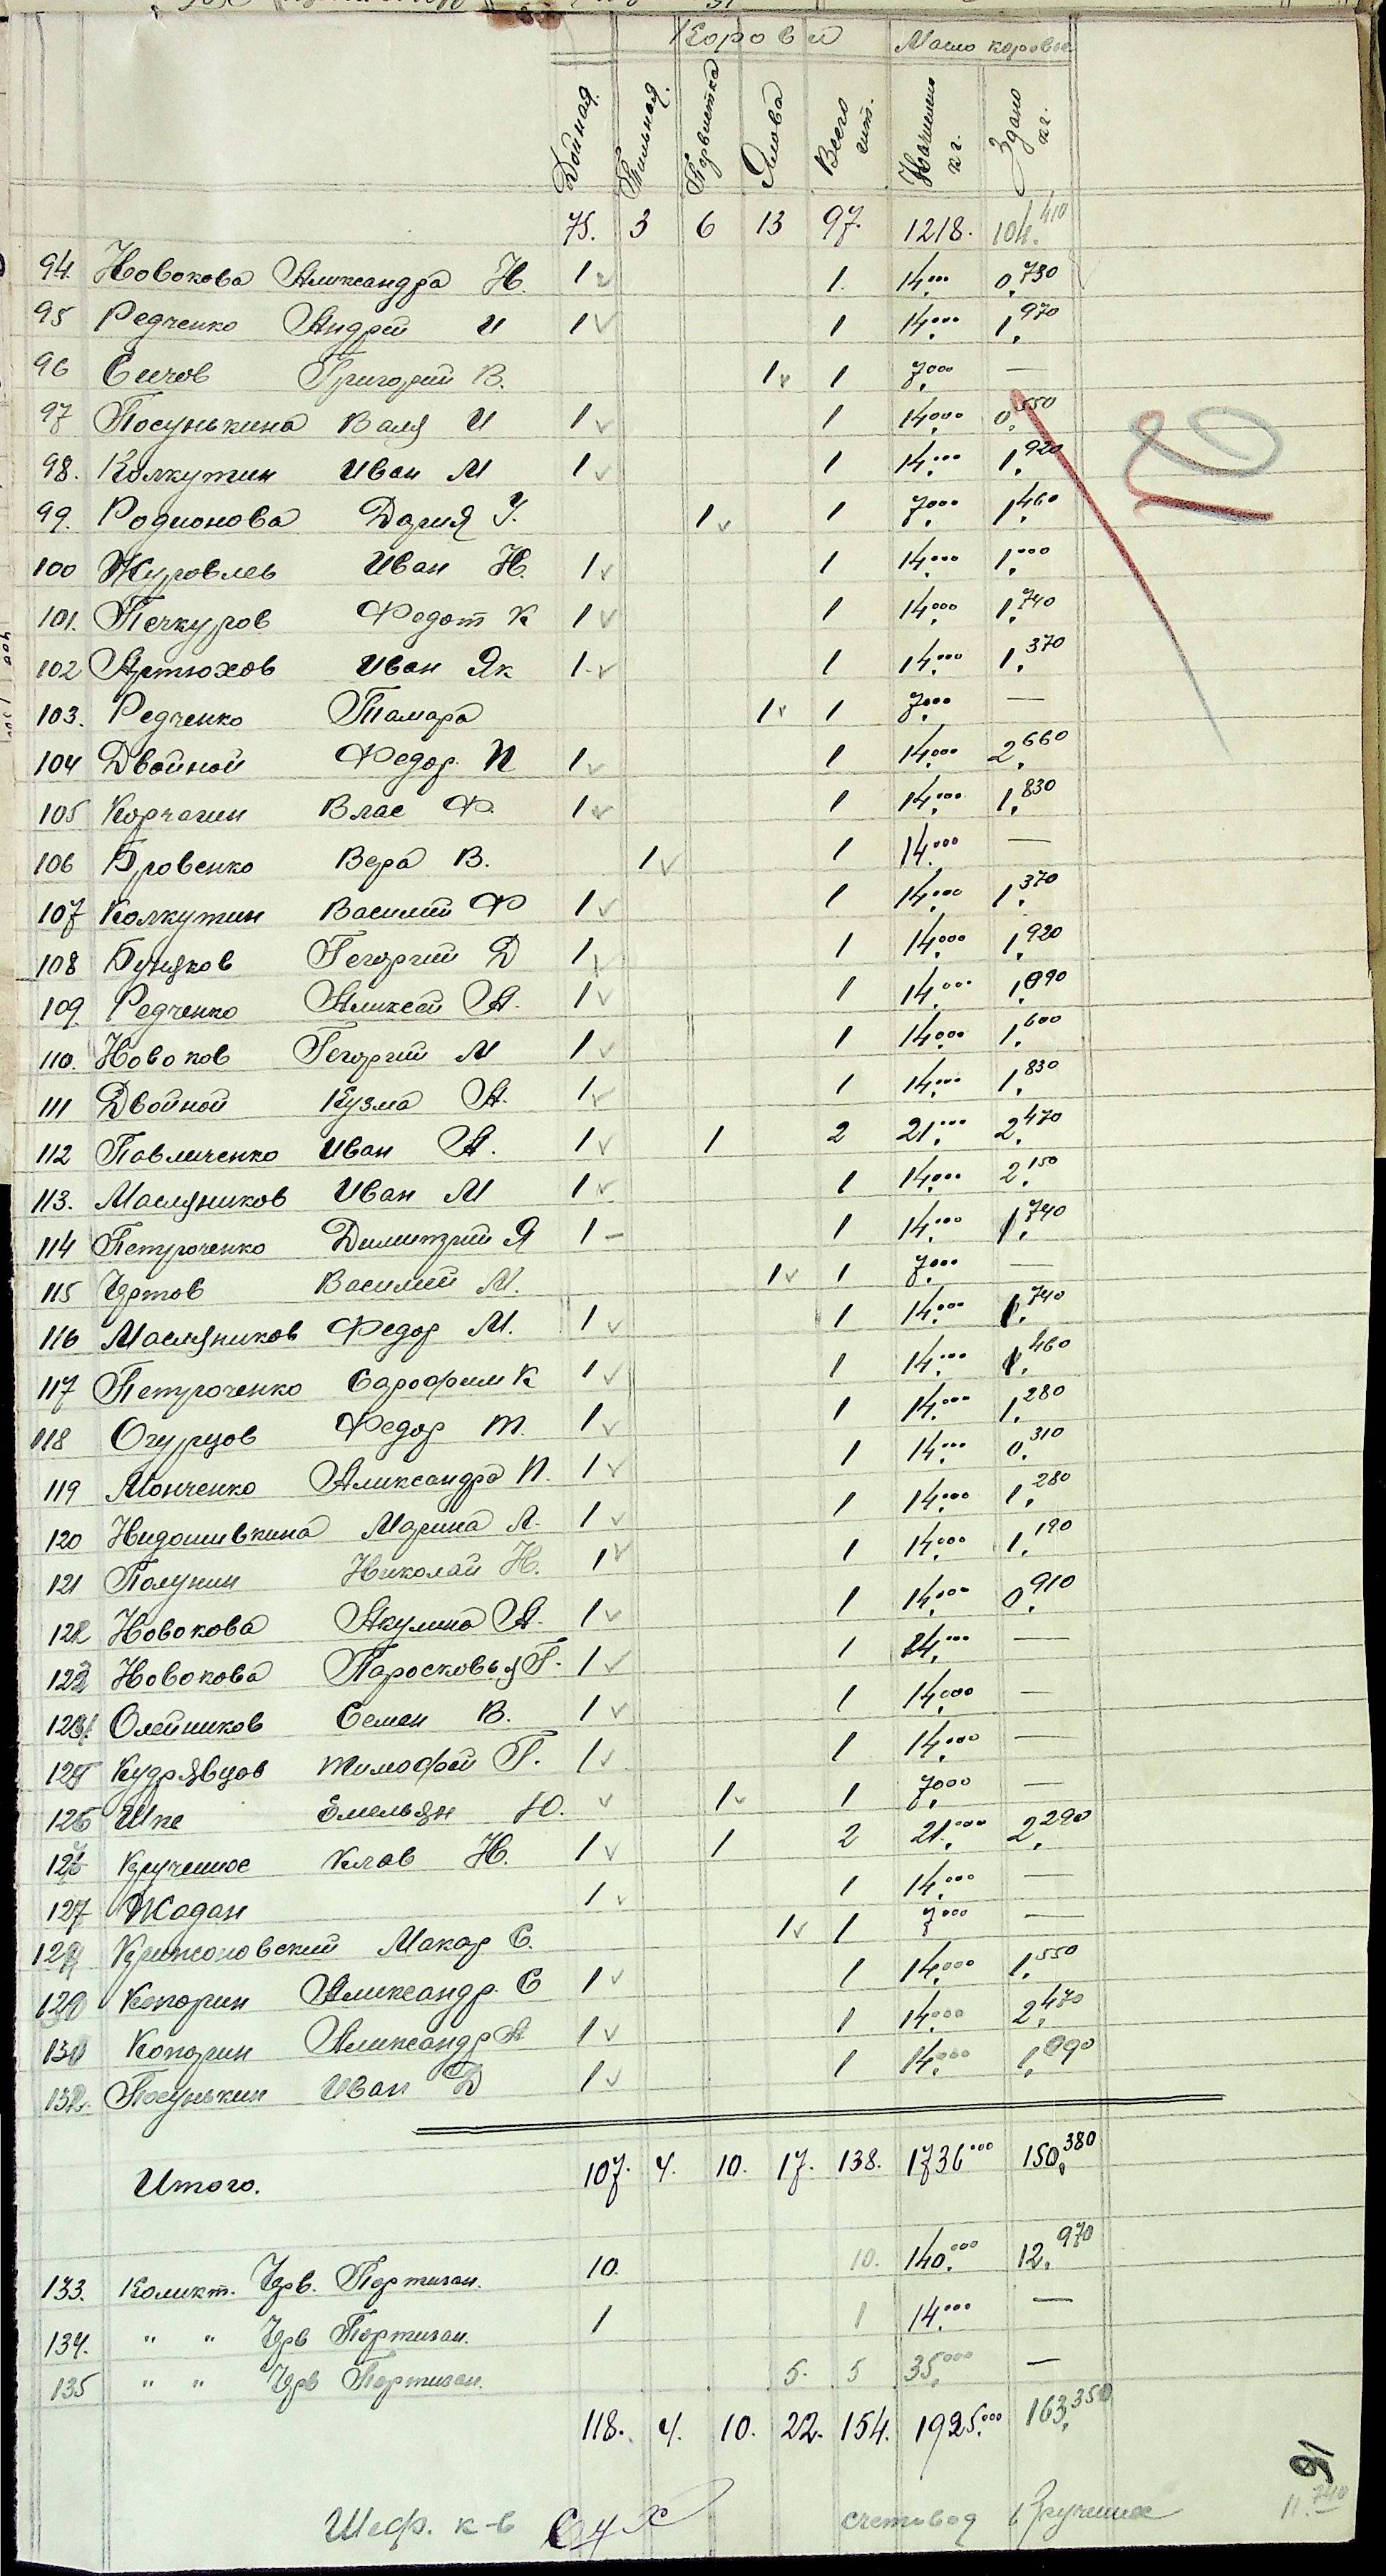 Корови Масло коровье
Дойная. Тильная. Первистка Ялова Всего шт. Начислено кг. Здано кг.
75. 3 6 13 97. 1218. 104.410
94. Новокова Александра Н. 1 1. 14.000 0.730
95 Редченко Андрей И 1 1 14.000 1.970
96 Сичов Григорий В. 1 1 7.000 —
97 Посунькина Валя И 1 1 14.000 0.550
98. Колкутин Иван М 1 1 14.000 1.920
99. Родионова Дария У. 1 1 7.000 1.460
100 Журовлев Иван Н. 1 1 14.000 1.000
101. Печкуров Федот К 1 1 14.000 1.740
102 Артюхов Иван Як 1 1 14.000 1.370
103. Редченко Тамара 1 1 7.000 —
104 Двойной Федор. П 1 1 14.000 2.660
105 Корчагин Влас Ф. 1 1 14.000 1.830
106 Бровенко Вера В. 1 1 14.000 —
107 Колкутин Василий Ф 1 1 14.000 1.370
108 Бучуков Георгий Д 1 1 14.000 1.920
109. Редченко Аликсей А. 1 1 14.000 1.090
110. Новоков Георгий М 1 1 14.000 1.600
111 Двойной Кузма А. 1 1 14.000 1.830
112 Павличенко Иван А. 1 1 2 21.000 2.470
113. Масляников Иван М 1 1 14.000 2.150
114 Петроченко Димитрий Я 1 1 14.000 1.740
115 Удотов Василий М. 1 1 7.000 —
116 Масляников Федор М. 1 1 14.000 1.740
117 Петроченко Сарофим К 1 1 14.000 1.460
118 Огурцов Федор Т. 1 1 14.000 1.280
119 Монченко Александра П. 1 1 14.000 0.310
120 Нидошивкина Марина Л. 1 1 14.000 1.280
121 Полунин Николай Н. 1 1 14.000 1.190
122 Новокова Акулина А. 1 1 14.000 0.910
123 Новокова Паросковья Г. 1 1 14.000 —
124. Олейников Семен В. 1 1 14.000 —
125 Кудрявцов Тимофей Г. 1 1 14.000 —
126 Шпе Емельян Ю. 1 1 7.000 —
127 Крученюс Клав Н. 1 1 2 21.000 2.290
127 Жадан 1 1 14.000 —
129 Крижоновский Макар С. 1 1 7.000 —
130 Копорин Александр. С 1 1 14.000 1.550
131 Копорин Александр А 1 1 14.000 2.470
132. Посунькин Иван Д 1 1 14.000 1.090
Итого. 107. 4. 10. 17. 138. 1736.000 150.380
133. Коликт. Чрв. Портизан. 10. 10. 140.000 12.970
134. " " Чрв Портизан. 1 1 14.000 —
135 " " Чрв Портизан. 5. 5 35.000 —
118. 4. 10. 22. 154. 1925.000 163.350
91
11.740
Шеф. к-в счетовод